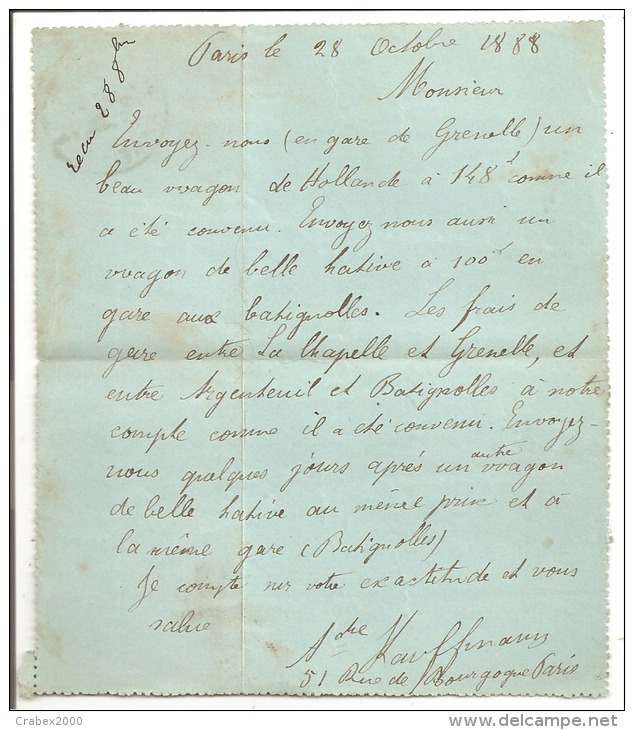 reçu 28 8bre
Paris le 28 Octobre 1888
Monsieur
Envoyez-nous (en gare de Grenelle) un
beau wagon de Hollande à 148f comme il
a été convenu. Envoyez nous aussi un
wagon de belle hative à 100f en
gare aux batignolles. Les frais de
gare entre La Chapelle et Grenelle, et
entre Argenteuil et Batignolles à notre
compte comme il a été convenu. Envoyez-
nous quelques jours aprés un autre wagon
de belle hative au même prix et à
la même gare (Batignolles)
Je compte sur votre exactitude et vous
salue
Adre Kauffmann
51 Rue de Bourgogne Paris
Crabex2000
www.delcampe.net